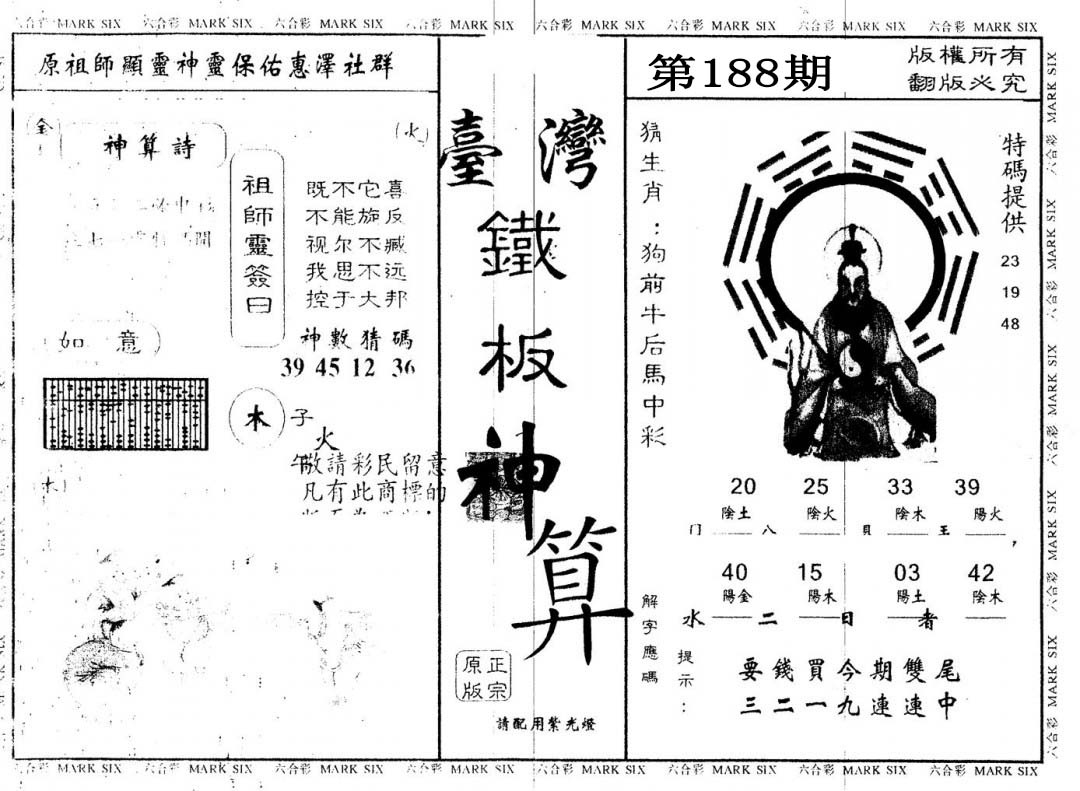 六合彩 MARK SIX 六合彩 MARK SIX 六合彩 MARK SIX 六合彩 MARK SIX 六合彩 MARK SIX 六合彩 MARK SIX 六合彩 MARK SIX 六合彩 MARK SIX
原祖師顯靈神靈保佑惠澤社群
金
神算詩
火
祖師靈簽曰
既不它喜
不能旋反
视尔不臧
我思不远
控于大邦
如意
神數猜碼
39 45 12 36
木
子
火
午敬請彩民留意
凡有此商標的
木
臺灣
鐵
板
神
算
正宗
原版
請配用紫光燈
第188期
版權所有
翻版必究
猜生肖:狗前牛后馬中彩
特碼提供
23
19
48
20 25 33 39
陰土 陰火 陰木 陽火
门 八 貝 王 ,
40 15 03 42
陽金 陽木 陽土 陰木
水 二 日 者
解字應碼
提示:
要錢買今期雙尾
三二一九連連中
六合彩 MARK SIX 六合彩 MARK SIX 六合彩 MARK SIX 六合彩 MARK SIX 六合彩 MARK SIX
六合彩 MARK SIX 六合彩 MARK SIX 六合彩 MARK SIX 六合彩 MARK SIX 六合彩 MARK SIX 六合彩 MARK SIX 六合彩 MARK SIX 六合彩 MARK SIX